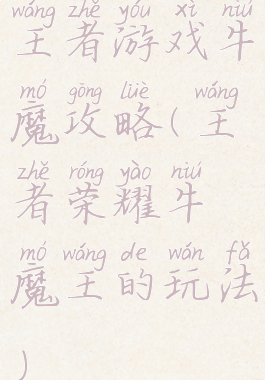 wáng zhě yóu xì niú
王者游戏牛
mó gōng lüè wáng
魔攻略(王
zhě róng yào niú
者荣耀牛
mó wáng de wán fǎ
魔王的玩法
)